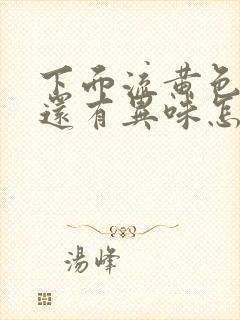 下面流黄色
還有異味怎
湯峰